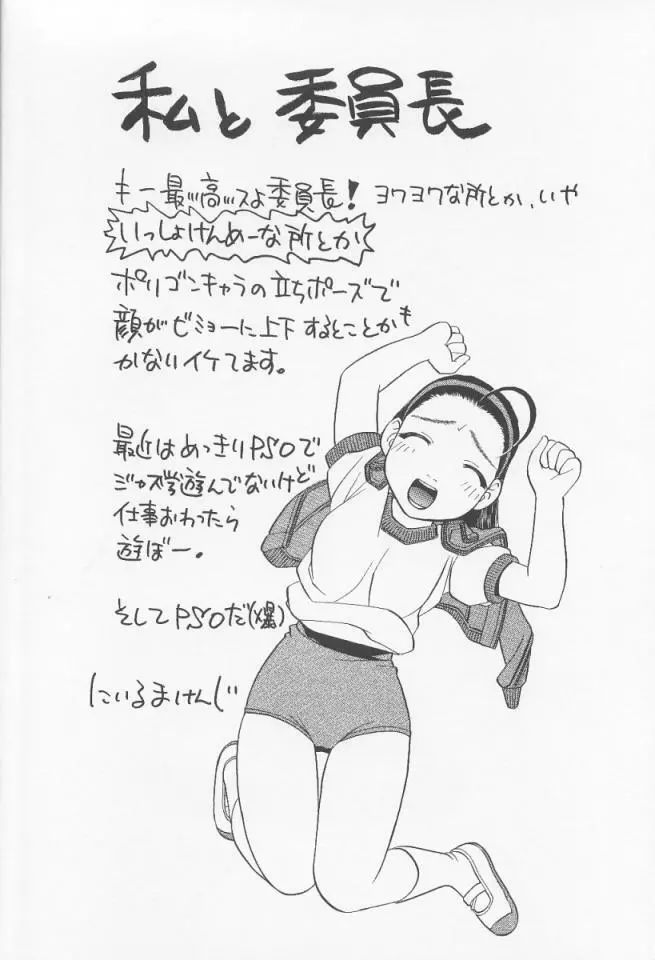 私と委員長
キー最ッ高ッスよ委員長！ヨワヨワな所とか、いや
いっしょけんめーな所とか
ポリゴンキャラの立ちポーズで
顔がビミョーに上下するとことかも
かないイケてます。
最近はめっきりPSOで
遊んでないけど
仕事おわったら
遊ぼー。
そしてPSOだ(爆)
にいるまけんじ